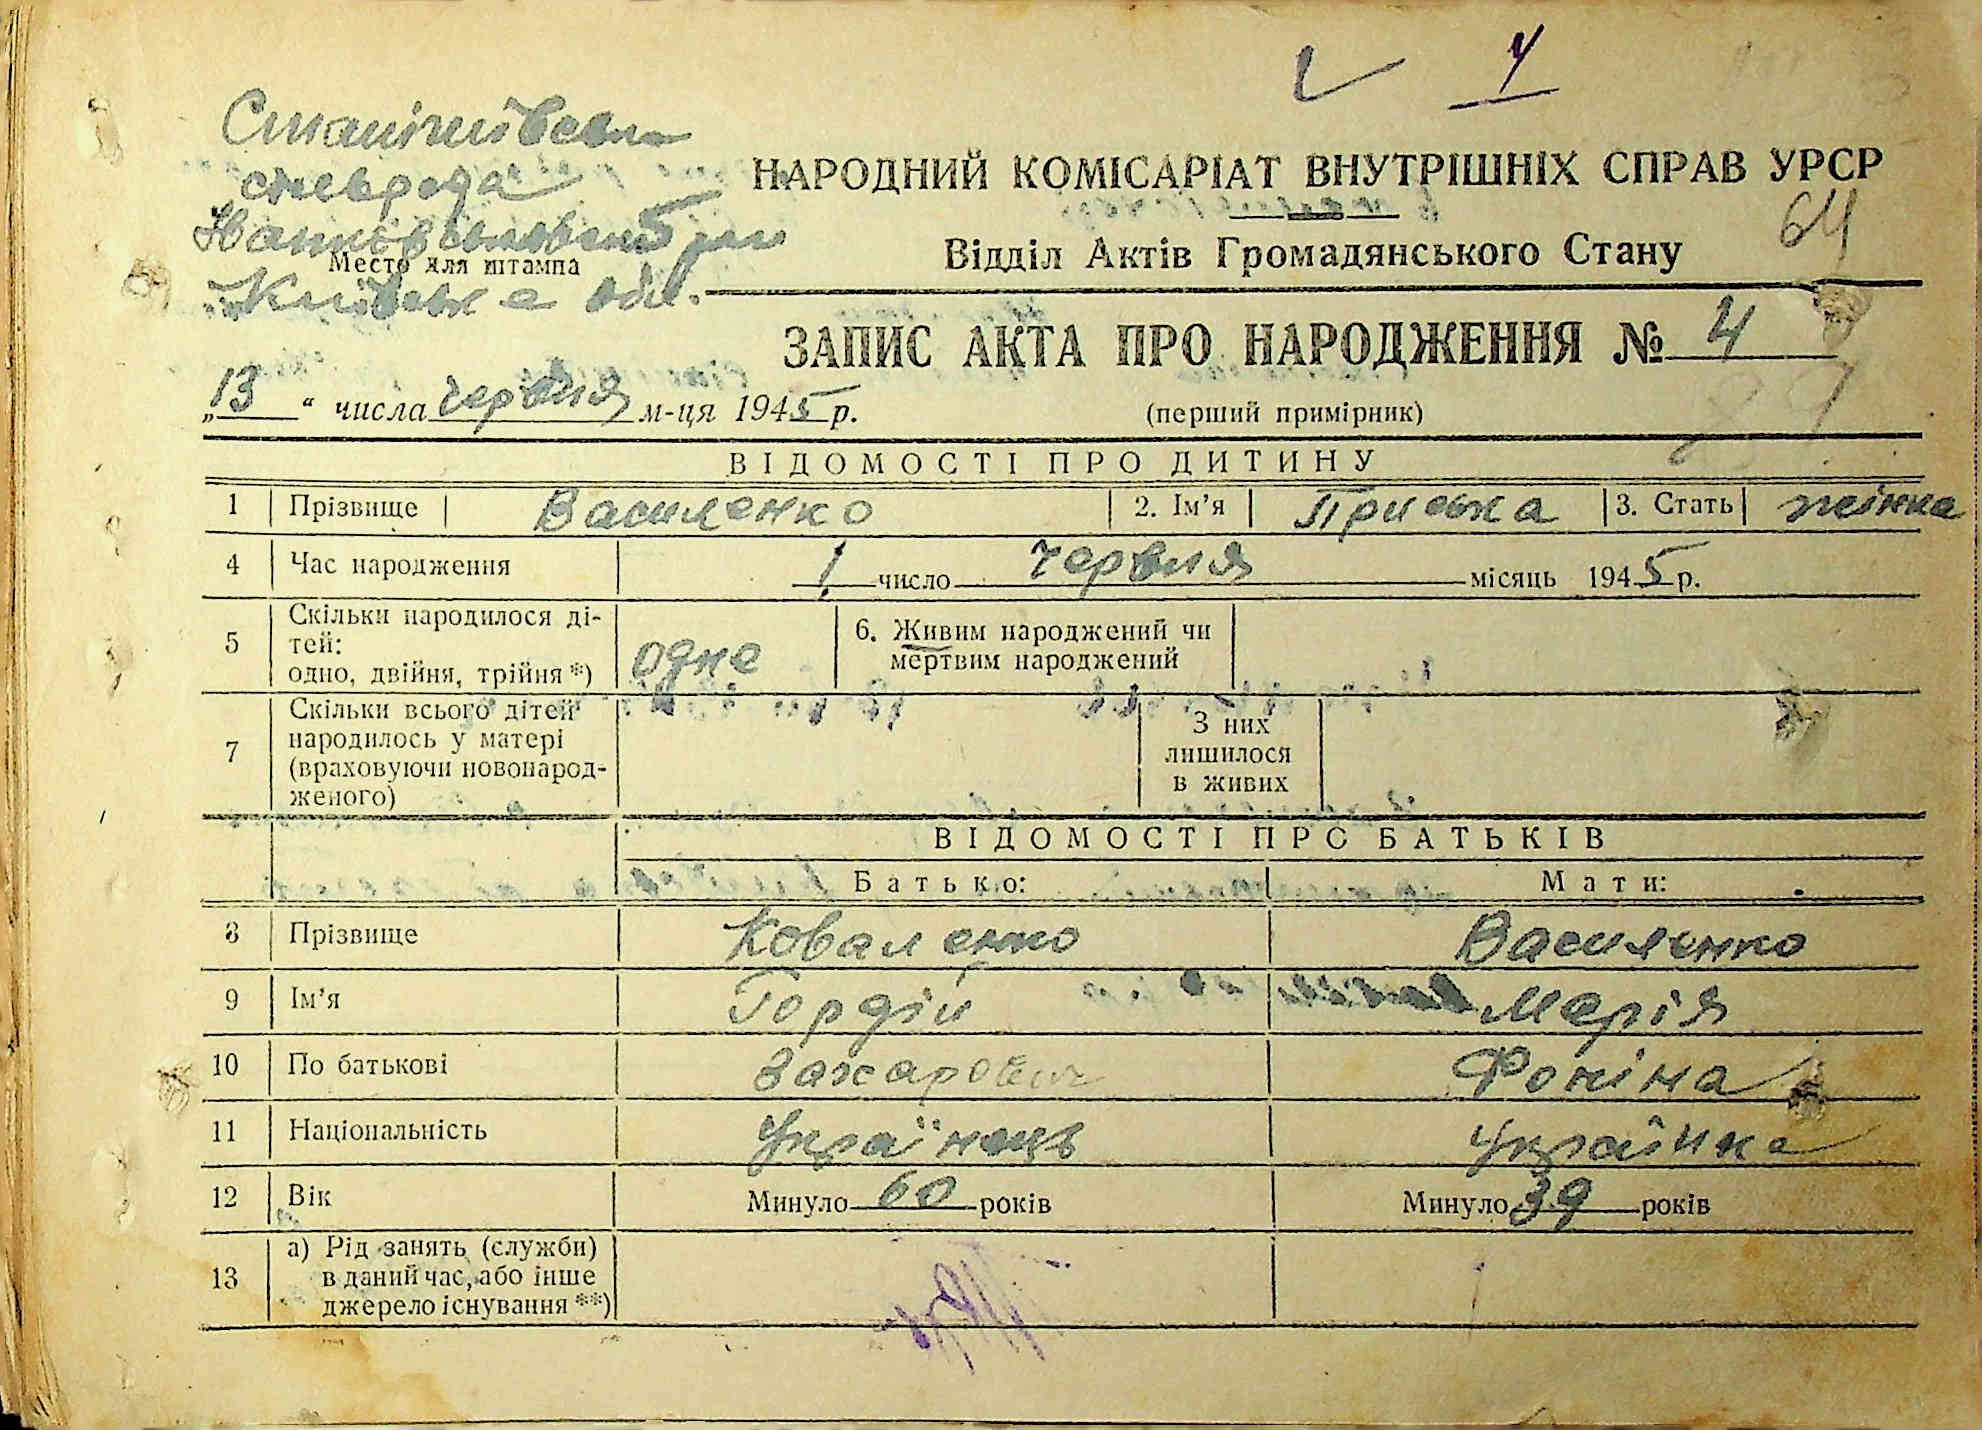 4
НАРОДНИЙ КОМІСАРІАТ ВНУТРІШНІХ СПРАВ УРСР
64
Відділ Актів Громадянського Стану
Место для штампа
ЗАПИС АКТА ПРО НАРОДЖЕННЯ № 4
„13“ числа червня м-ця 1945 р.
(перший примірник)
ВІДОМОСТІ ПРО ДИТИНУ
1 Прізвище Василенко 2. Ім’я Приська 3. Стать жінка
4 Час народження 1 число червня місяць 1945 р.
5 Скільки народилося ді-
тей:
одно, двійня, трійня *) одне
6. Живим народжений чи
мертвим народжений
7 Скільки всього дітей
народилось у матері
(враховуючи новонарод-
женого)
З них
лишилося
в живих
ВІДОМОСТІ ПРО БАТЬКІВ
Батько: Мати:
8 Прізвище Коваленко Василенко
9 Ім’я Гордій Марія
10 По батькові Захарович
11 Національність Українець Українка
12 Вік Минуло 60 років Минуло 39 років
13 а) Рід занять (служби)
в даний час, або інше
джерело існування **)